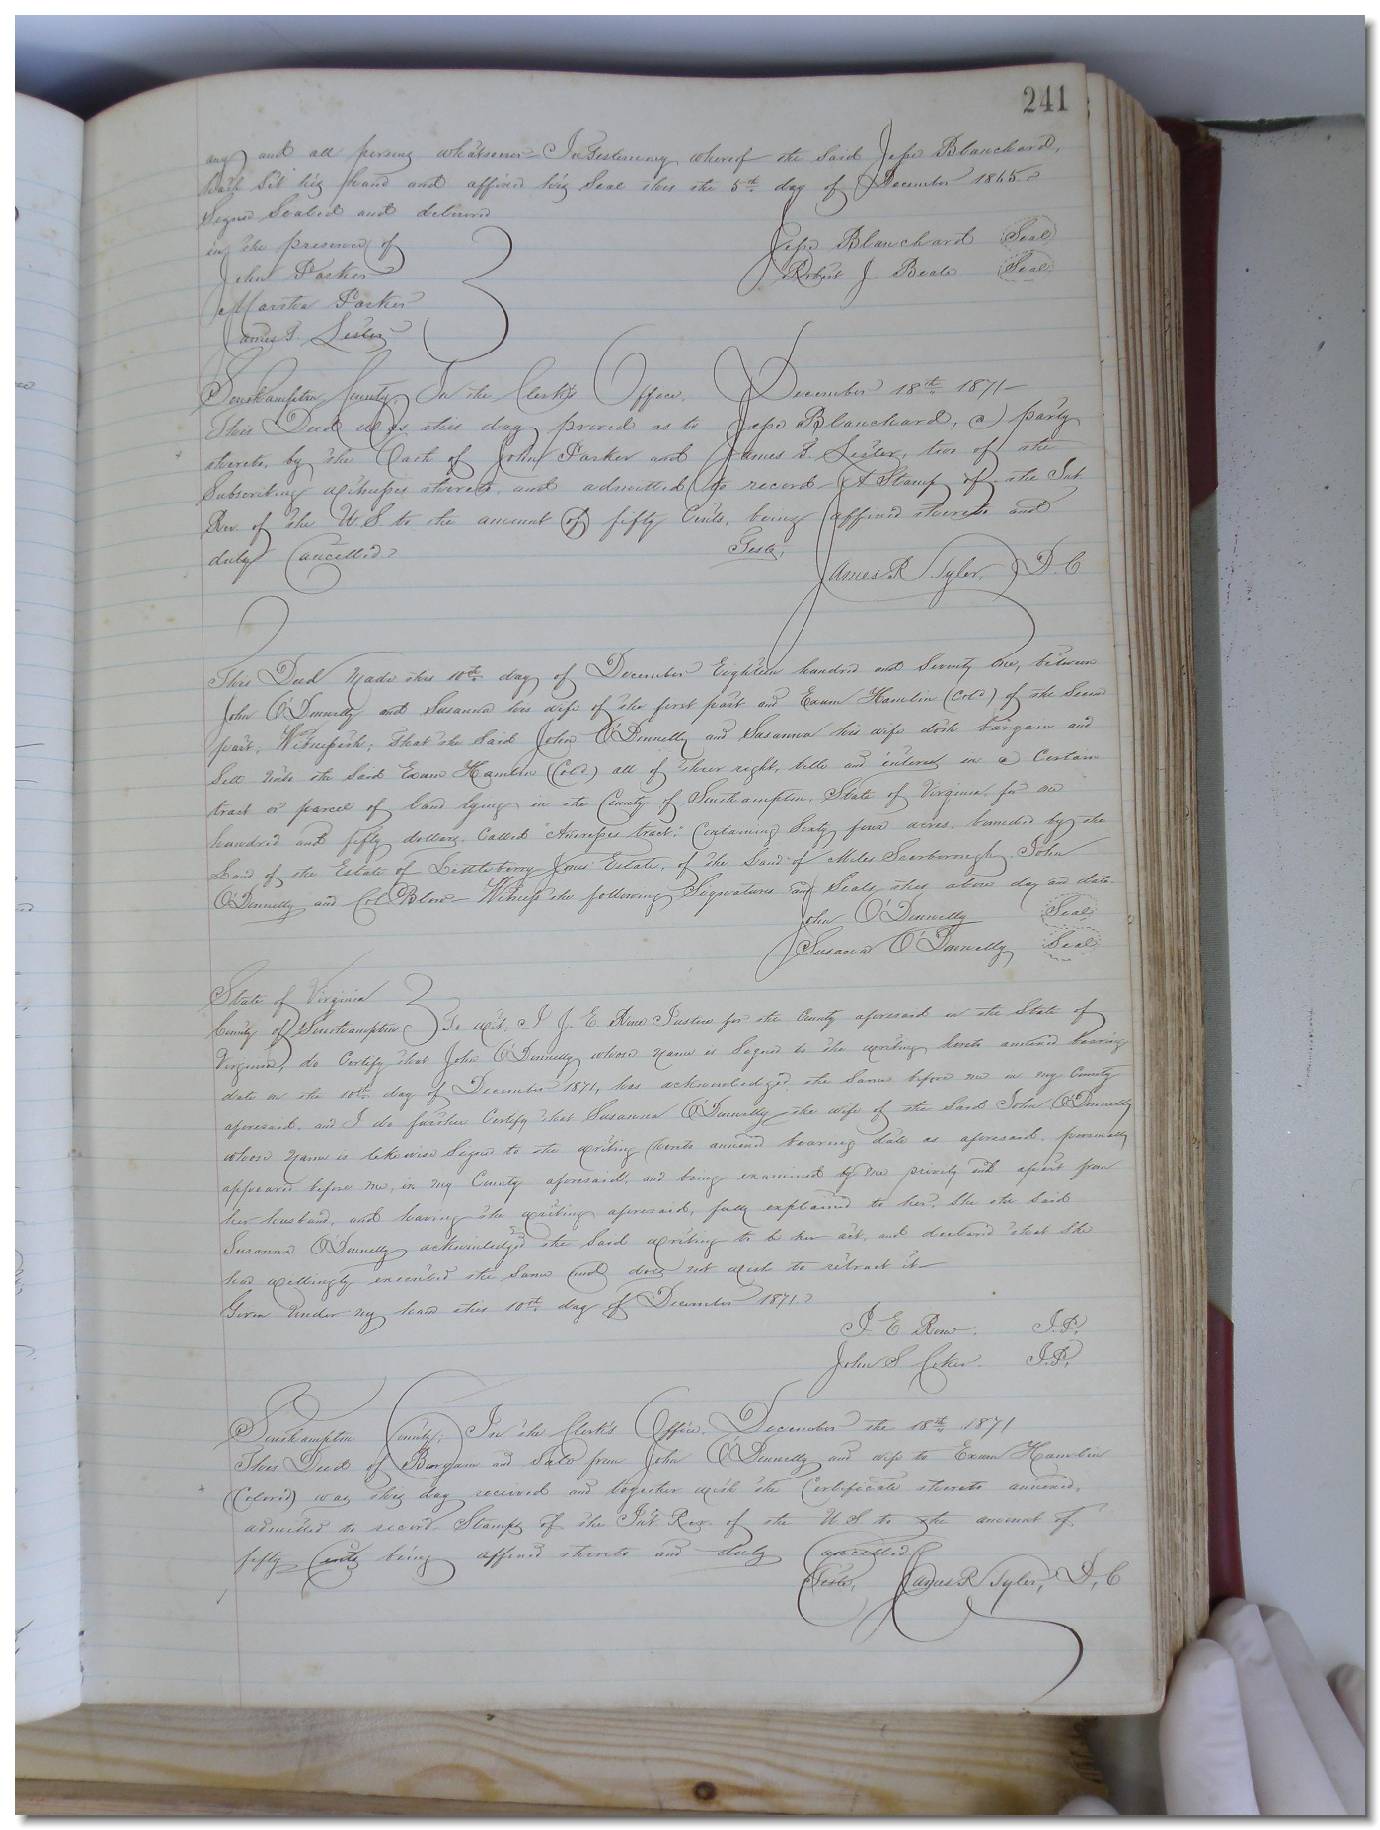 241
any and all persons whatsoever In Testimony whereof the Said Jesse Blanchard,
hath Set his hand and affixed his Seal this the 5th day of December 1865
Signed Sealed and delivered
in the presence of
Jesse Blanchard Seal
John Parker
Robert J Beale Seal
Parker
James T. Lester
Southampton County, In the Clerk's Office, December 18th 1871
This Deed was this day proved as to Jesse Blanchard, a party
thereto, by the Oath of John Parker and James T. Lester, two of the
Subscribing witnesses thereto, and admitted to record A Stamp of the Int
Rev. of the U.S to the amount of fifty Cents, being affixed thereto and
duly Cancelled
Teste,
James R Tyler, D.C
This Deed made this 10th day of December Eighteen hundred and Seventy One, between
John O'Donnelly and Susanna his wife of the first part and Exum Hamlin (Cold) of the Secon
part, Witnesseth; That the Said John O'Donnelly and Susanna his wife doth bargain and
Sell unto the Said Exum Hamlin (Cold) all of their right, title and interest in a Certain
tract or parcel of land lying in the County of Southampton, State of Virginia, for one
hundred and fifty dollars. Called tract," Containing Sixty four acres, bounded by the
Land of the Estate of Littleberry Jones Estate, of the Land of Miles Scarborough John
O'Donnelly and Col Blow Witness the following Signatures and Seals this above day and date
John O'Donnelly Seal
Susanna O'Donnelly Seal
State of Virginia
County of Southampton To wit, I J. E. Justice for the County aforesaid in the State of
Virginia, do Certify that John O'Donnelly whose name is Signed to the writing hereto annexed bearing
date on the 10th day of December 1871, has acknowledged the Same before me in my County
aforesaid. and I do further Certify that Susanna O'Donnelly the wife of the Said John O'Donnelly
whose name is likewise Signed to the writing hereto annexed bearing date as aforesaid, personally
appeared before me, in my County aforesaid, and being examined by me privily and apart from
her husband, and having the writing aforesaid, fully explained to her, She the Said
Susanna O'Donnelly acknowledged the Said writing to be her act, and declared that She
had willingly executed the Same and does not wish to retract it
Given Under my hand this 10th day of December 1871
J. E. J.P.
John S Coker J.P.
Southampton County; In the Clerk's Office, December the 18th 1871
This Deed of Bargain and Sale from John O'Donnelly and wife to Exum Hamlin
(Colored) was this day received and together with the Certificate thereto annexed,
admitted to record Stamps of the Int Rev. of the U S to the amount of
fifty Cents being affixed thereto and duly Cancelled
Teste, James R Tyler, D,C